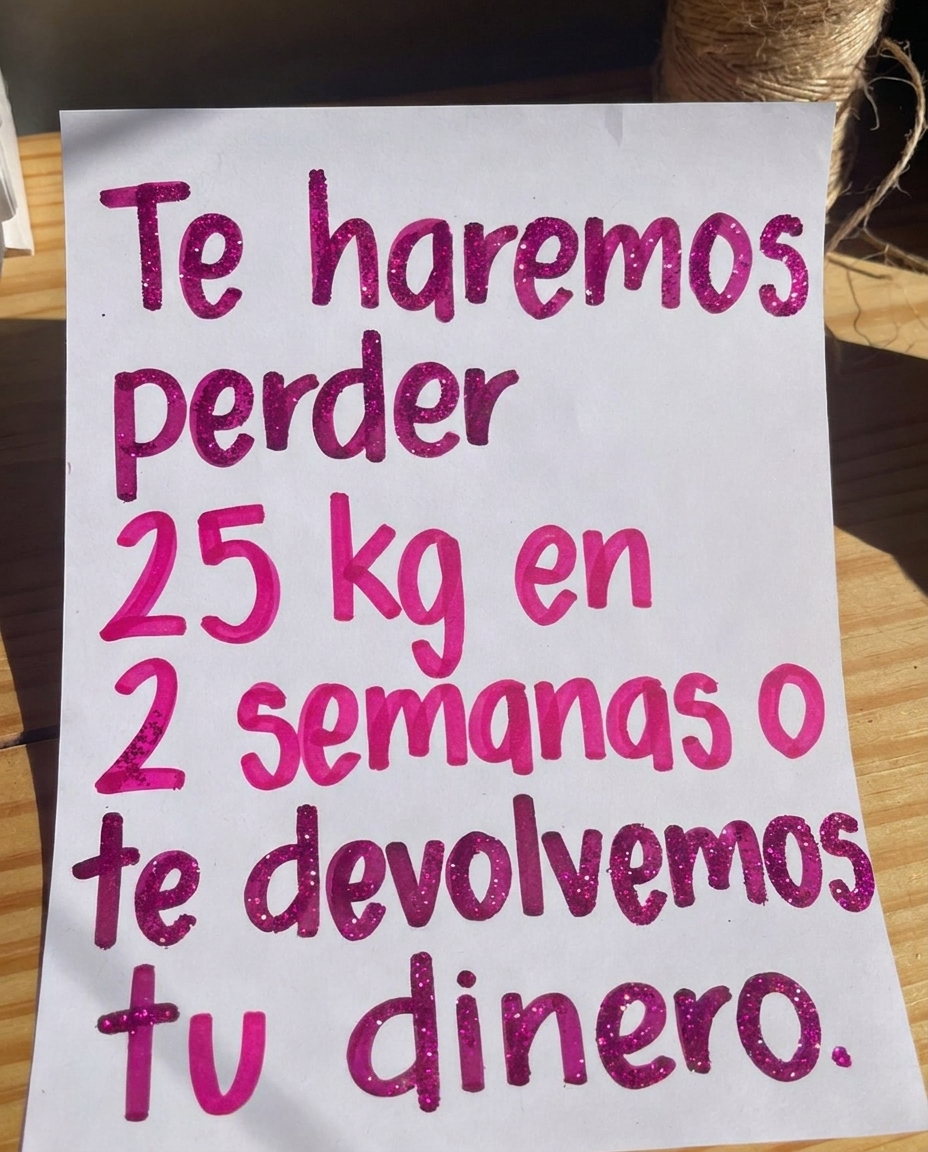 Te haremos
perder
25 kg en
2 semanas o
te devolvemos
tu dinero.